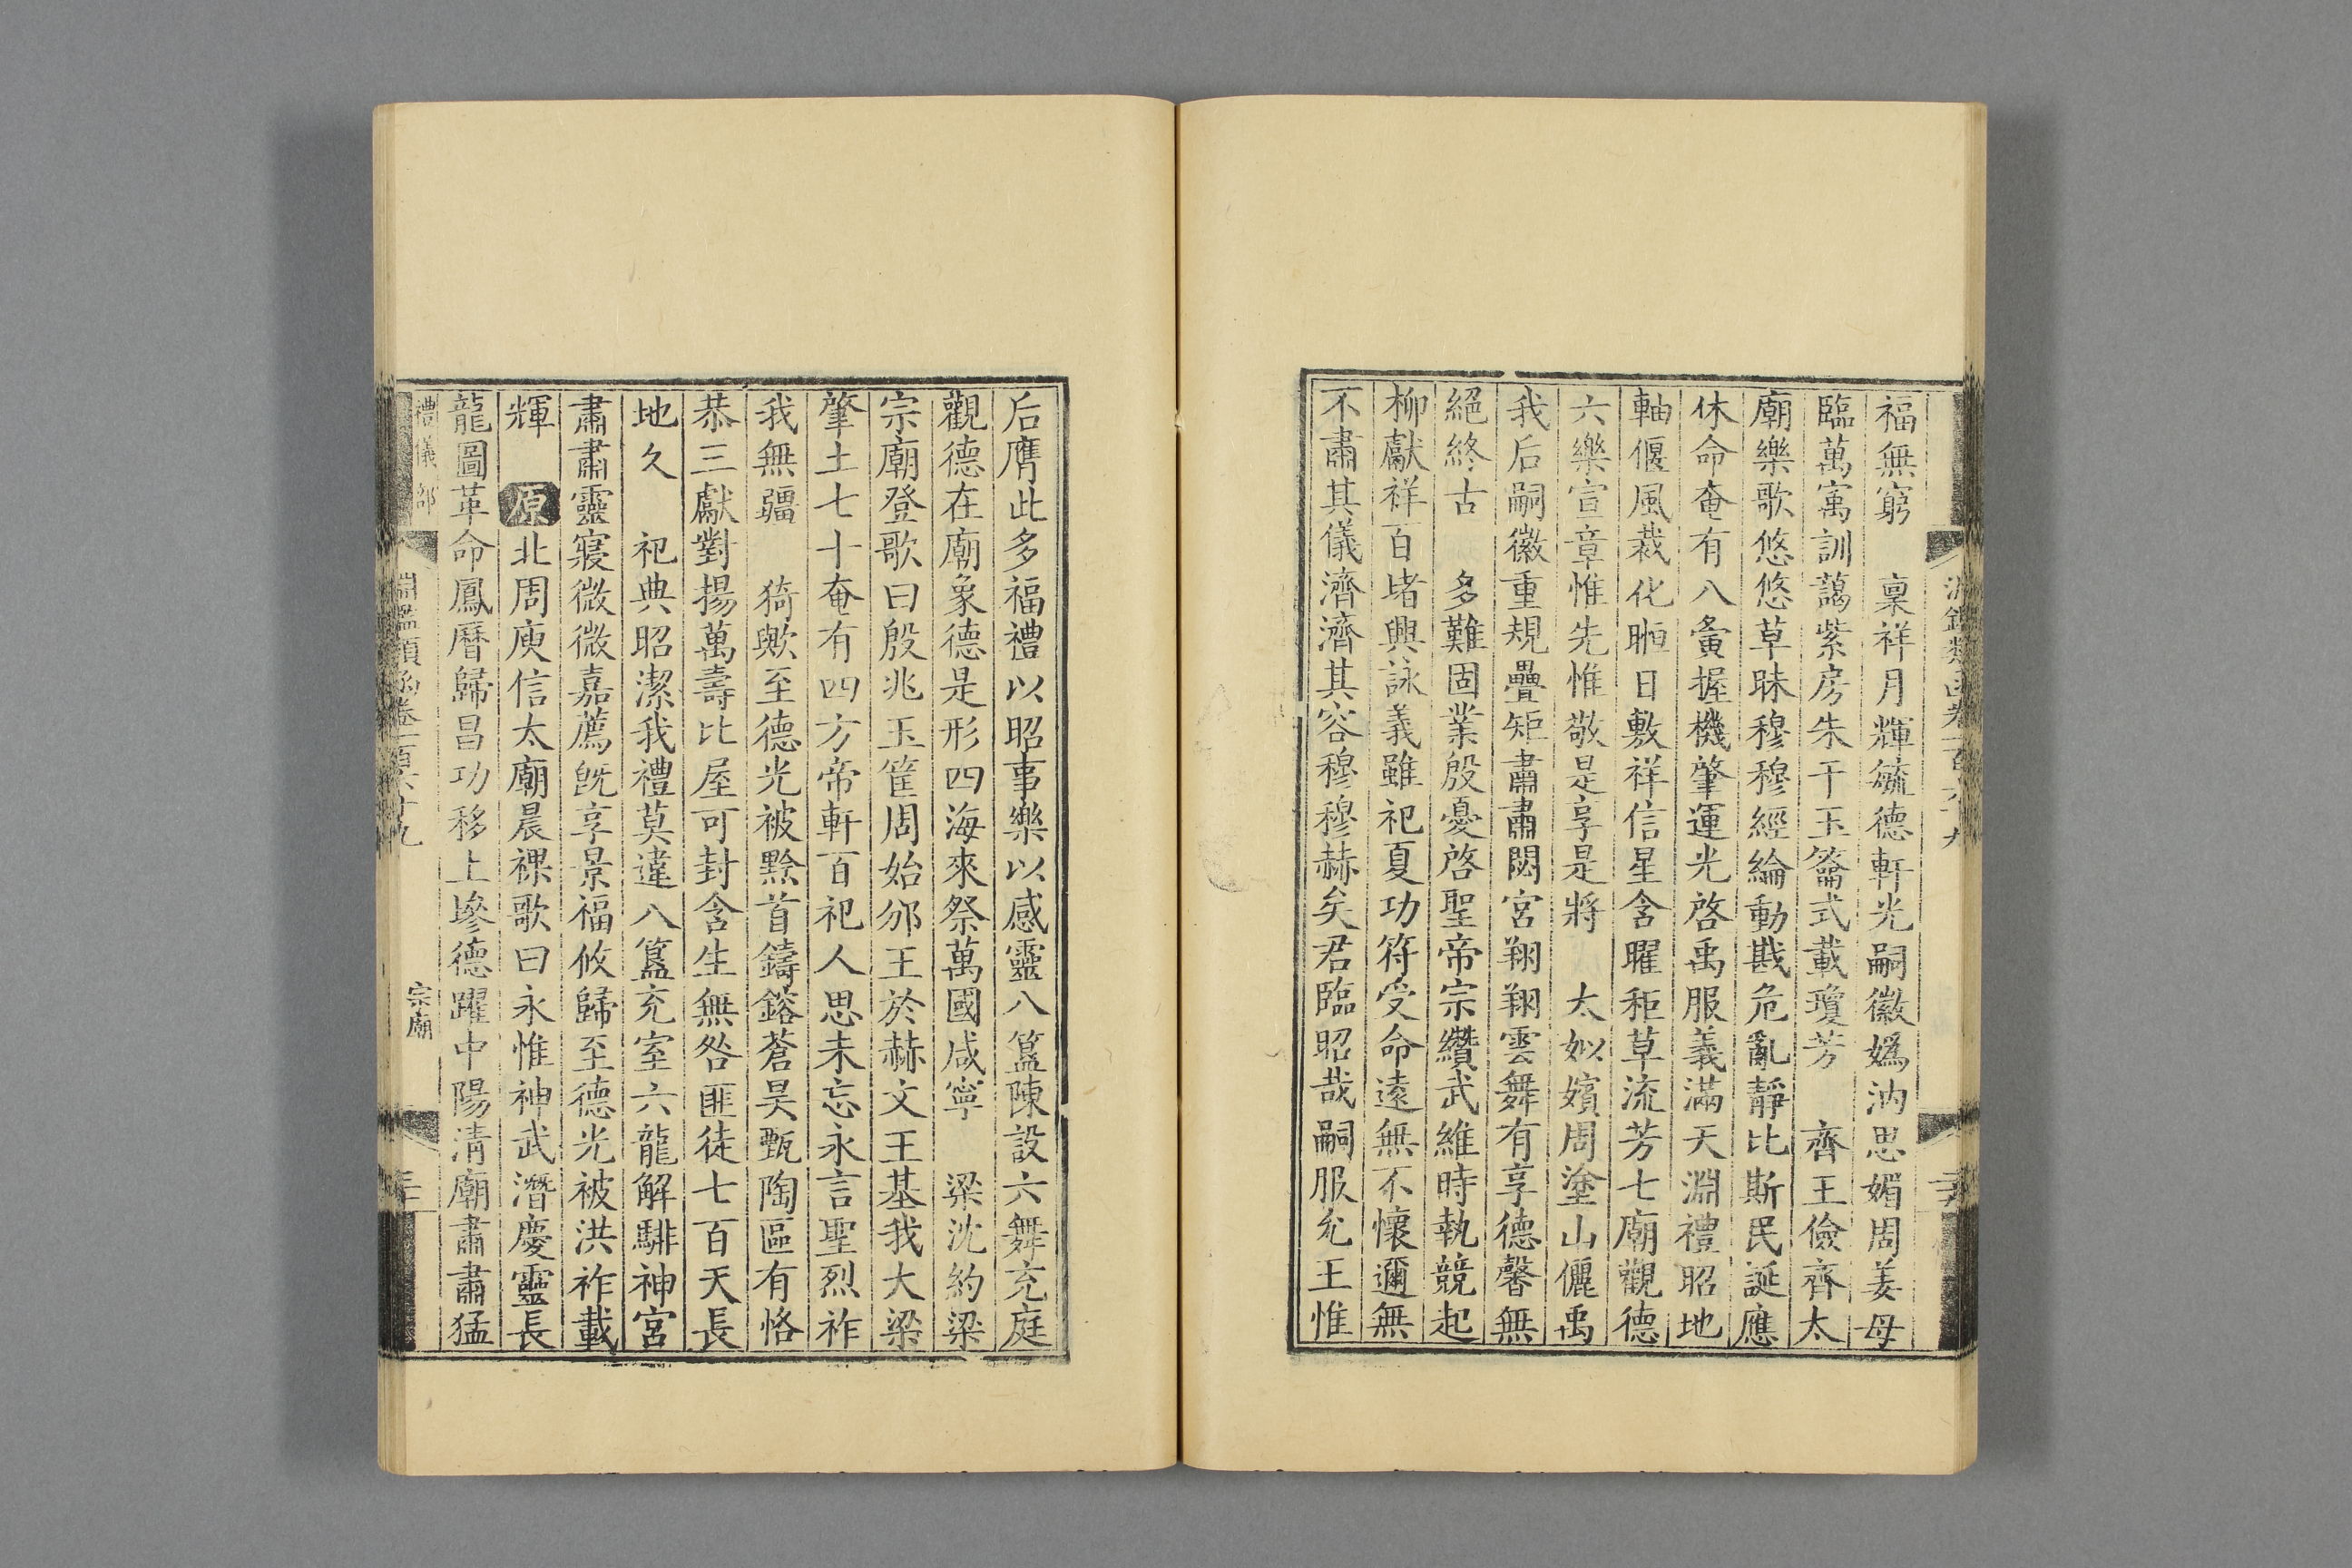 福無窮　稟祥月輝毓德軒光嗣徽嬀汭思媚周姜母
臨萬寓訓藹紫房朱干玉籥式載瓊芳　齊王儉齊太
廟樂歌悠悠草昧穆穆經綸動戡危亂靜比斯民誕應
休命奄有八夤握機肇運光啓禹服義滿天淵禮昭地
軸偃風裁化暅日敷祥信星含曜秬草流芳七廟觀德
六樂宣章惟先惟敬是享是將　太姒嬪周塗山儷禹
我后嗣徽重規疊矩肅肅閟宮翔翔雲舞有享德馨無
絕終古　多難固業殷憂啓聖帝宗纘武維時執競起
柳獻祥百堵興詠義雖祀夏功符受命遠無不懷邇無
不肅其儀濟濟其容穆穆赫矣君臨昭哉嗣服允王惟
后膺此多福禮以昭事樂以感靈八簋陳設六舞充庭
觀德在廟象德是形四海來祭萬國咸寧　梁沈約梁
宗廟登歌曰殷兆玉筐周始邠王於赫文王基我大梁
肇土七十奄有四方帝軒百祀人思未忘永言聖烈祚
我無疆　猗歟至德光被黔首鑄鎔蒼昊甄陶區有恪
恭三獻對揚萬壽比屋可封含生無咎匪徒七百天長
地久　祀典昭潔我禮莫違八簋充室六龍解騑神宮
肅肅靈寢微微嘉薦旣享景福攸歸至德光被洪祚載
輝　原北周庾信太廟晨祼歌曰永惟神武潛慶靈長
龍圖革命鳳曆歸昌功移上墋德躍中陽淸廟肅肅猛
禮儀部　淵鑑類函卷一百六十九　宗廟